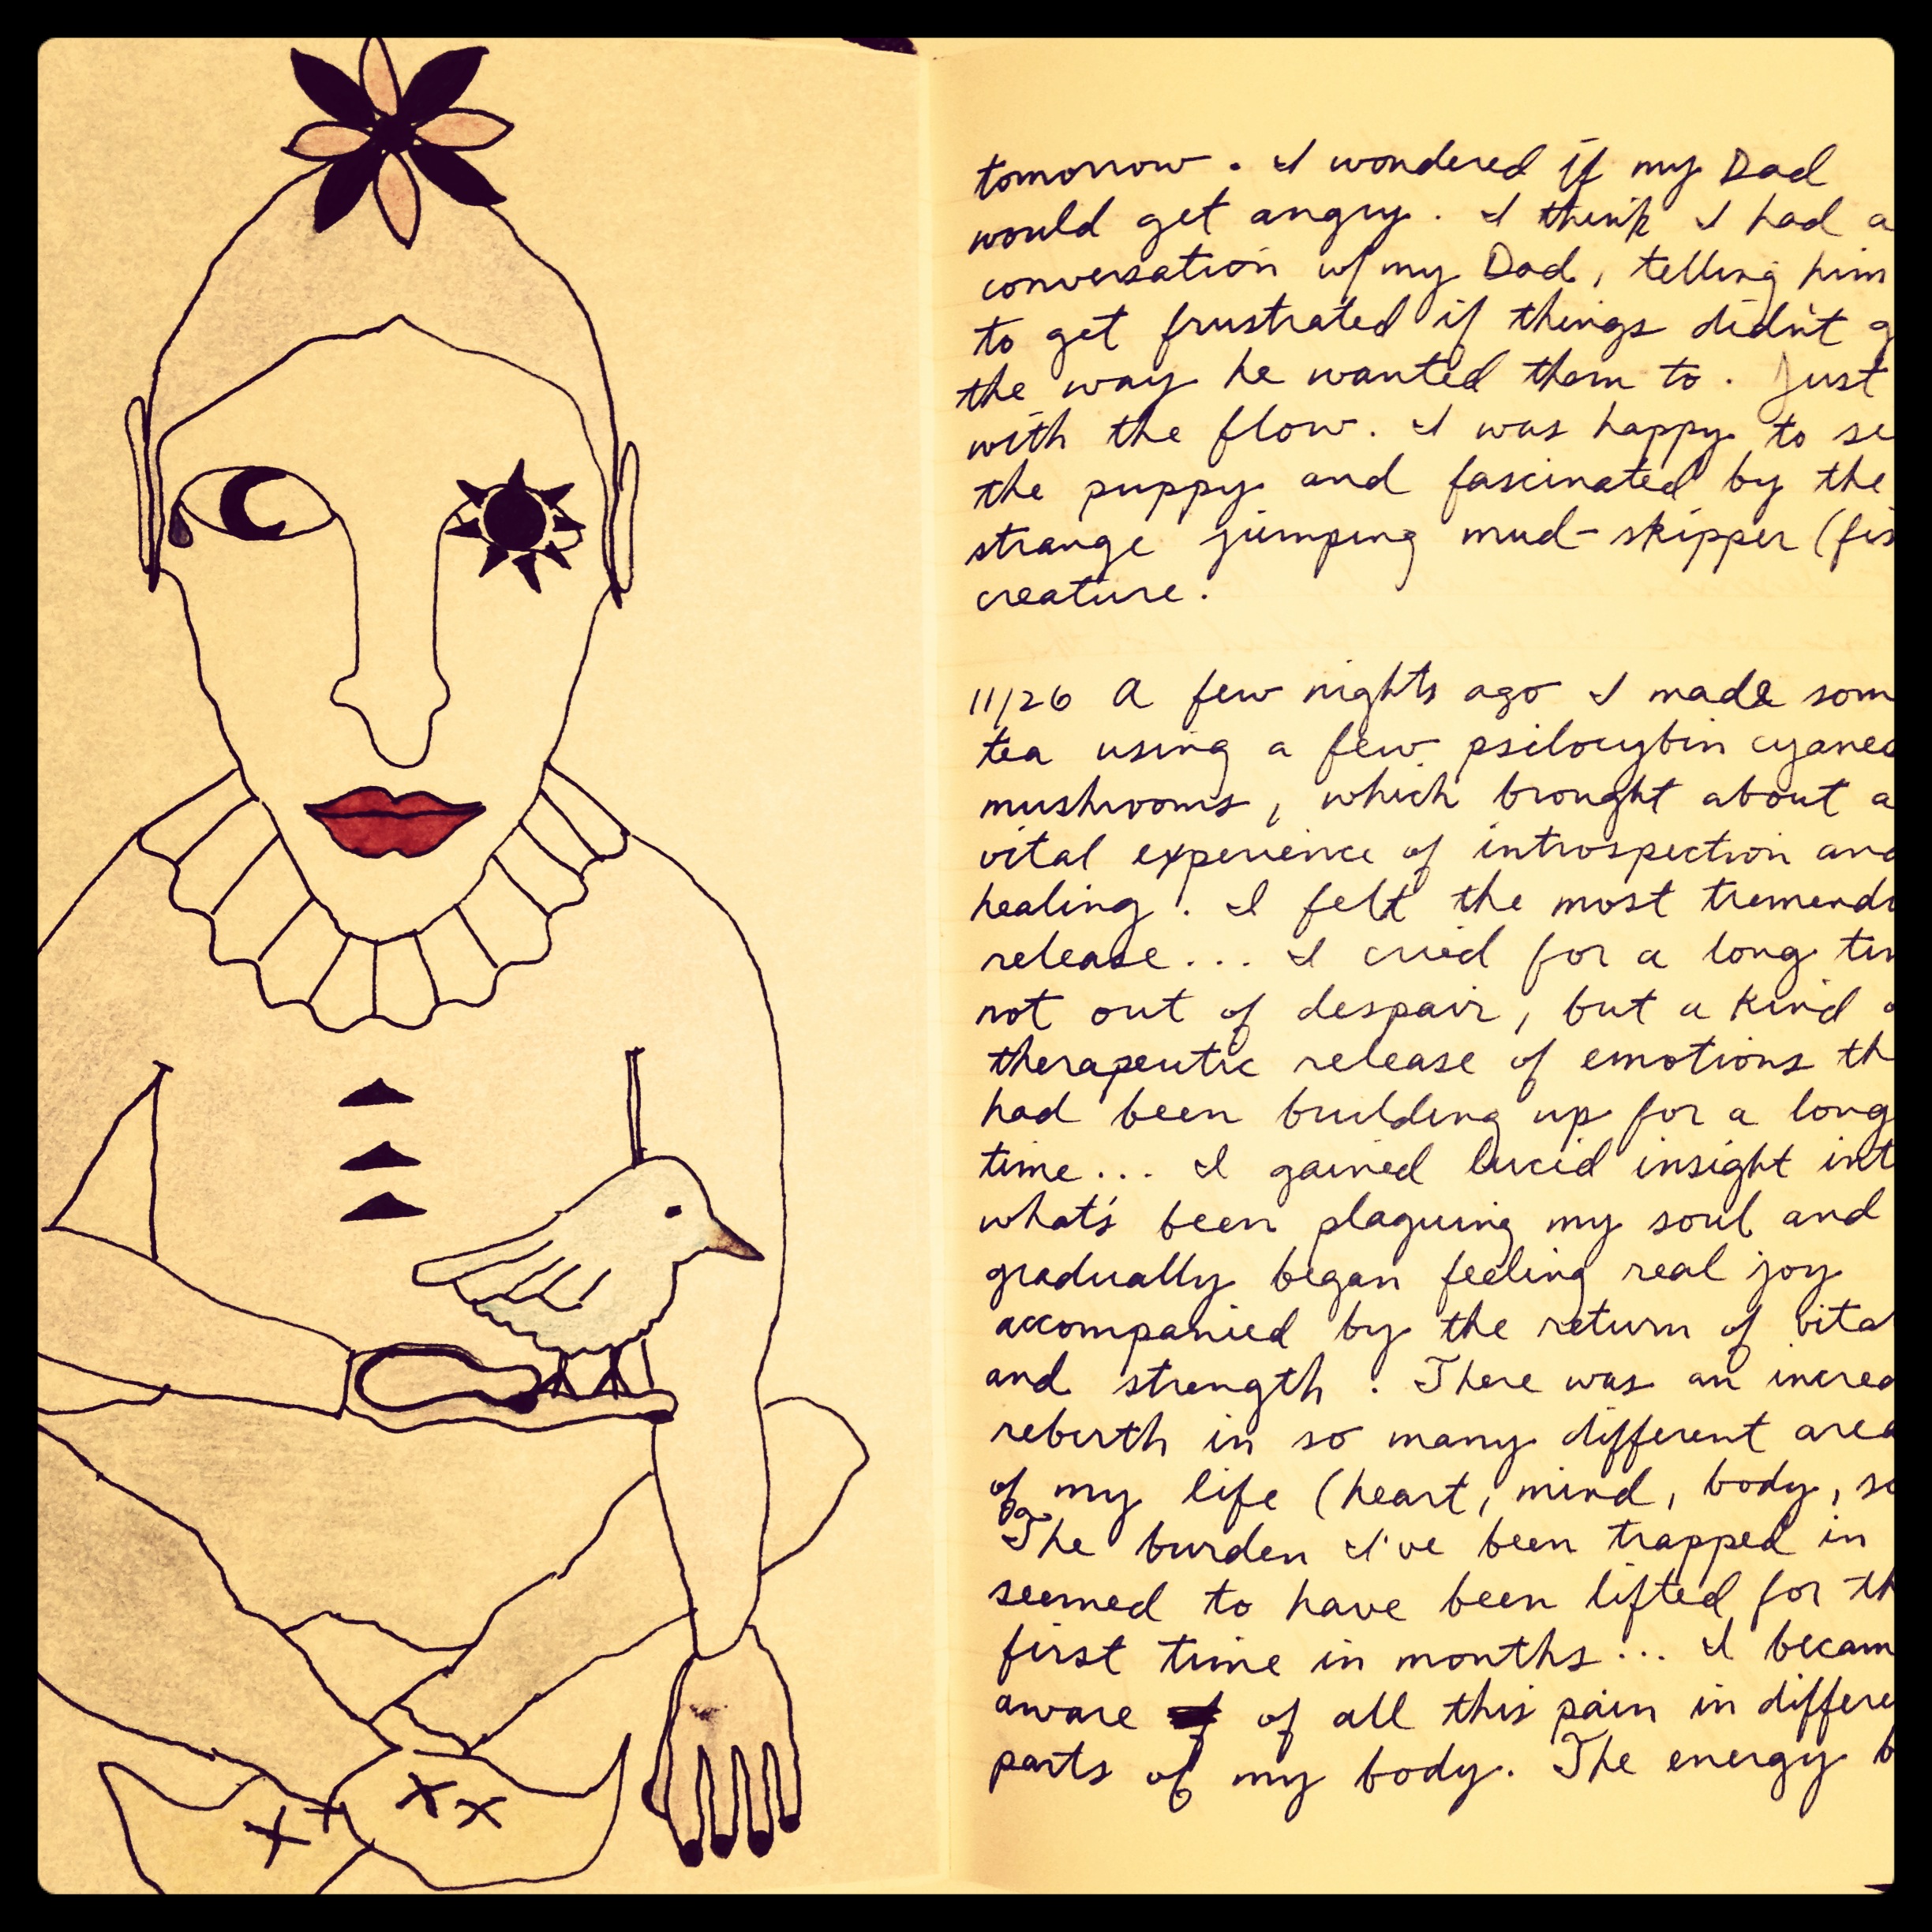 tomorrow. I wondered if my Dad
would get angry. I think I had a
conversation w/ my Dad, telling him
to get frustrated if things didn't g
the way he wanted them to. Just
with the flow. I was happy to se
the puppy and fascinated by the
strange jumping mud-skipper (fis
creature.
11/26 A few nights ago I made som
tea using a few psilocybin cyanea
mushrooms, which brought about a
vital experience of introspection and
healing. I felt the most tremend
release... I cried for a long tim
not out of despair, but a kind o
therapeutic release of emotions th
had been building up for a long
time... I gained lucid insight int
what's been plaguing my soul and
gradually began feeling real joy
accompanied by the return of vita
and strength. There was an increa
rebirth in so many different area
of my life (heart, mind, body, so
The burden I've been trapped in
seemed to have been lifted for th
first time in months... I becam
aware of all this pain in differe
parts of my body. The energy b